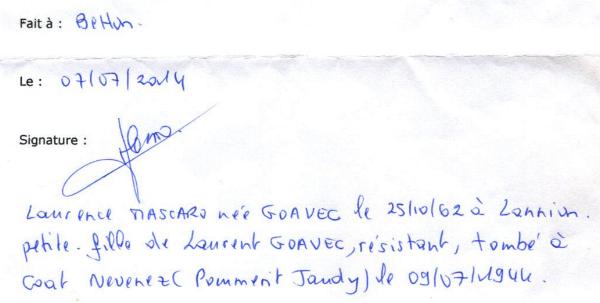 Fait à : Betton.
Le : 07/07/2014
Signature :
Laurence MASCARO née GOAVEC le 25/10/62 à Lannion.
petite-fille de Laurent GOAVEC, résistant, tombé à
Coat Nevenez (Pommerit Jaudy) le 09/07/1944.